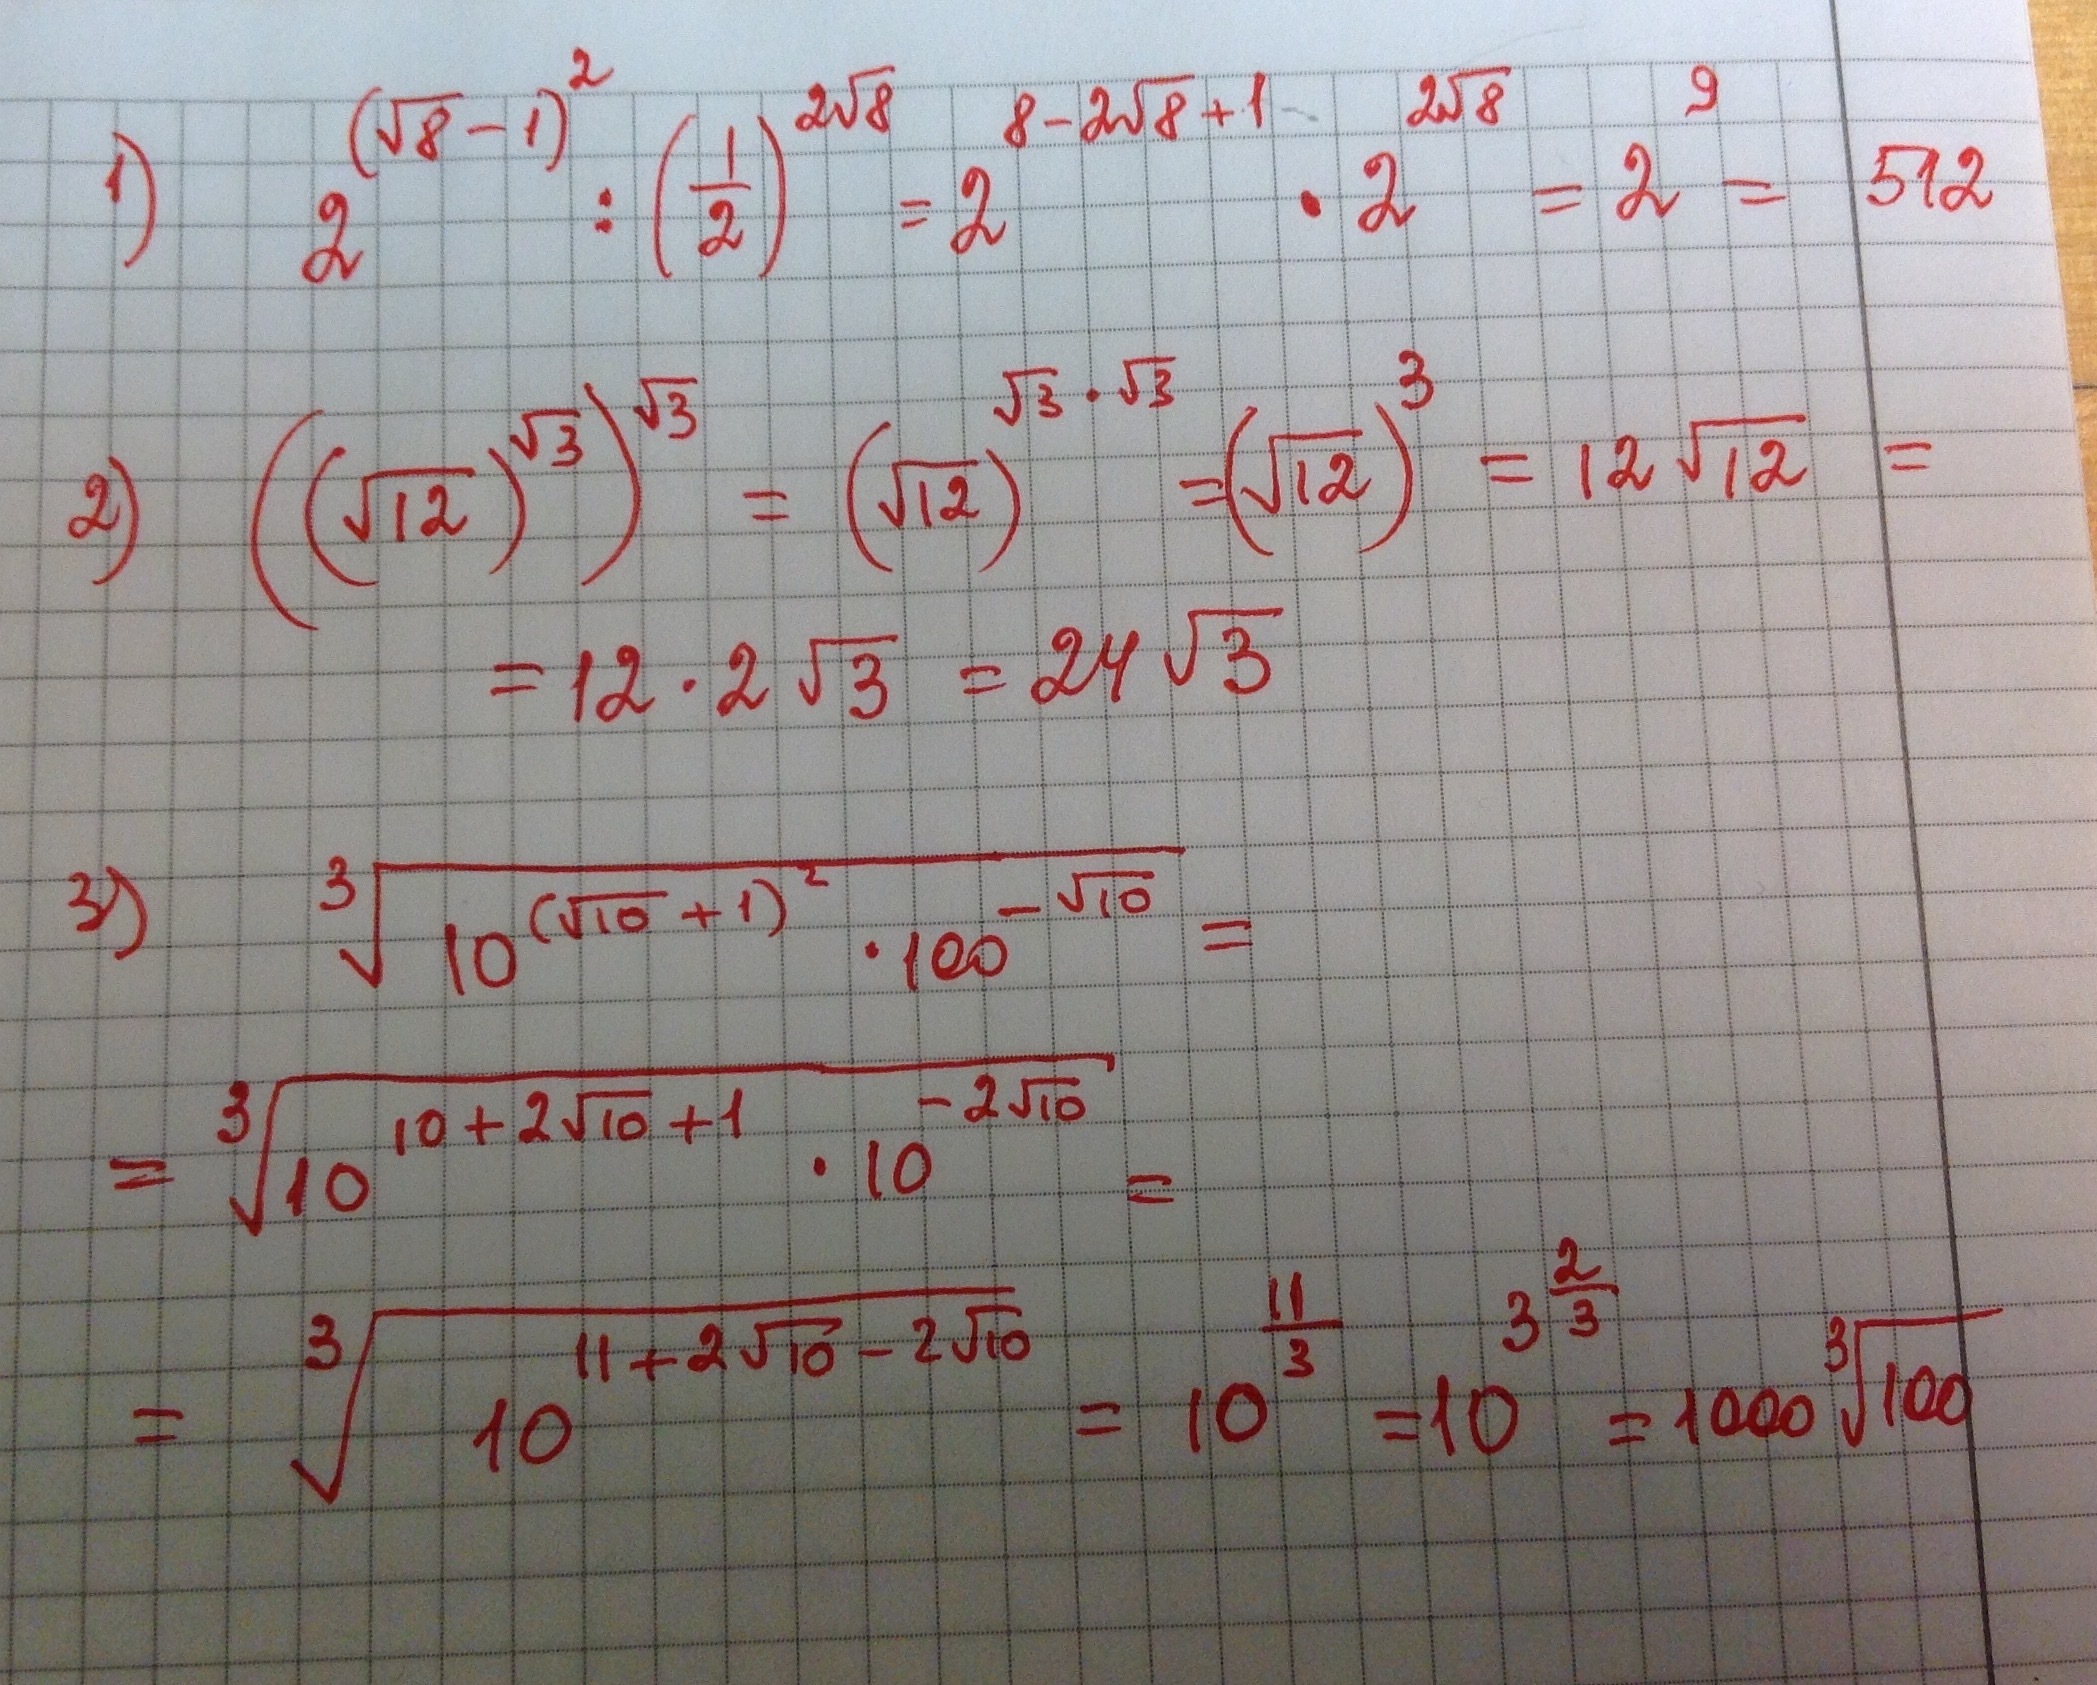 1) 2^{(√8-1)^2} : (1/2)^{2√8} = 2^{8-2√8+1} · 2^{2√8} = 2^9 = 512
2) ((√12)^{√3})^{√3} = (√12)^{√3·√3} = (√12)^3 = 12√12 =
= 12·2√3 = 24√3
3) ∛(10^{(√10+1)^2} · 100^{-√10}) =
= ∛(10^{10+2√10+1} · 10^{-2√10}) =
= ∛(10^{11+2√10-2√10}) = 10^{11/3} = 10^{3 2/3} = 1000∛100